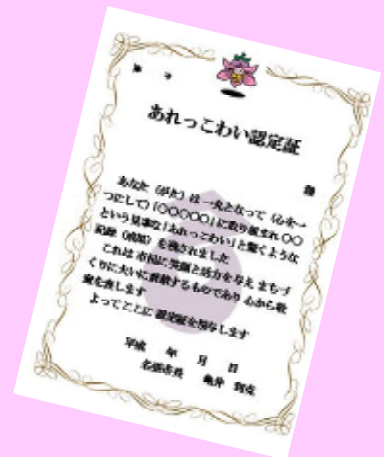 第 号
あれっこわい認定証
様
あなた（がた）は 一丸となって（心を一
つにして）「〇〇〇〇〇」に取り組まれ 〇〇
という見事な「あれっこわい」と驚くような
記録（成果）を残されました
これは 市民に笑顔と活力を与え まちづ
くりに大いに貢献するものであり 心から敬
意を表します
よってここに 認定証を授与します
平成 年 月 日
名張市長 亀井 利克